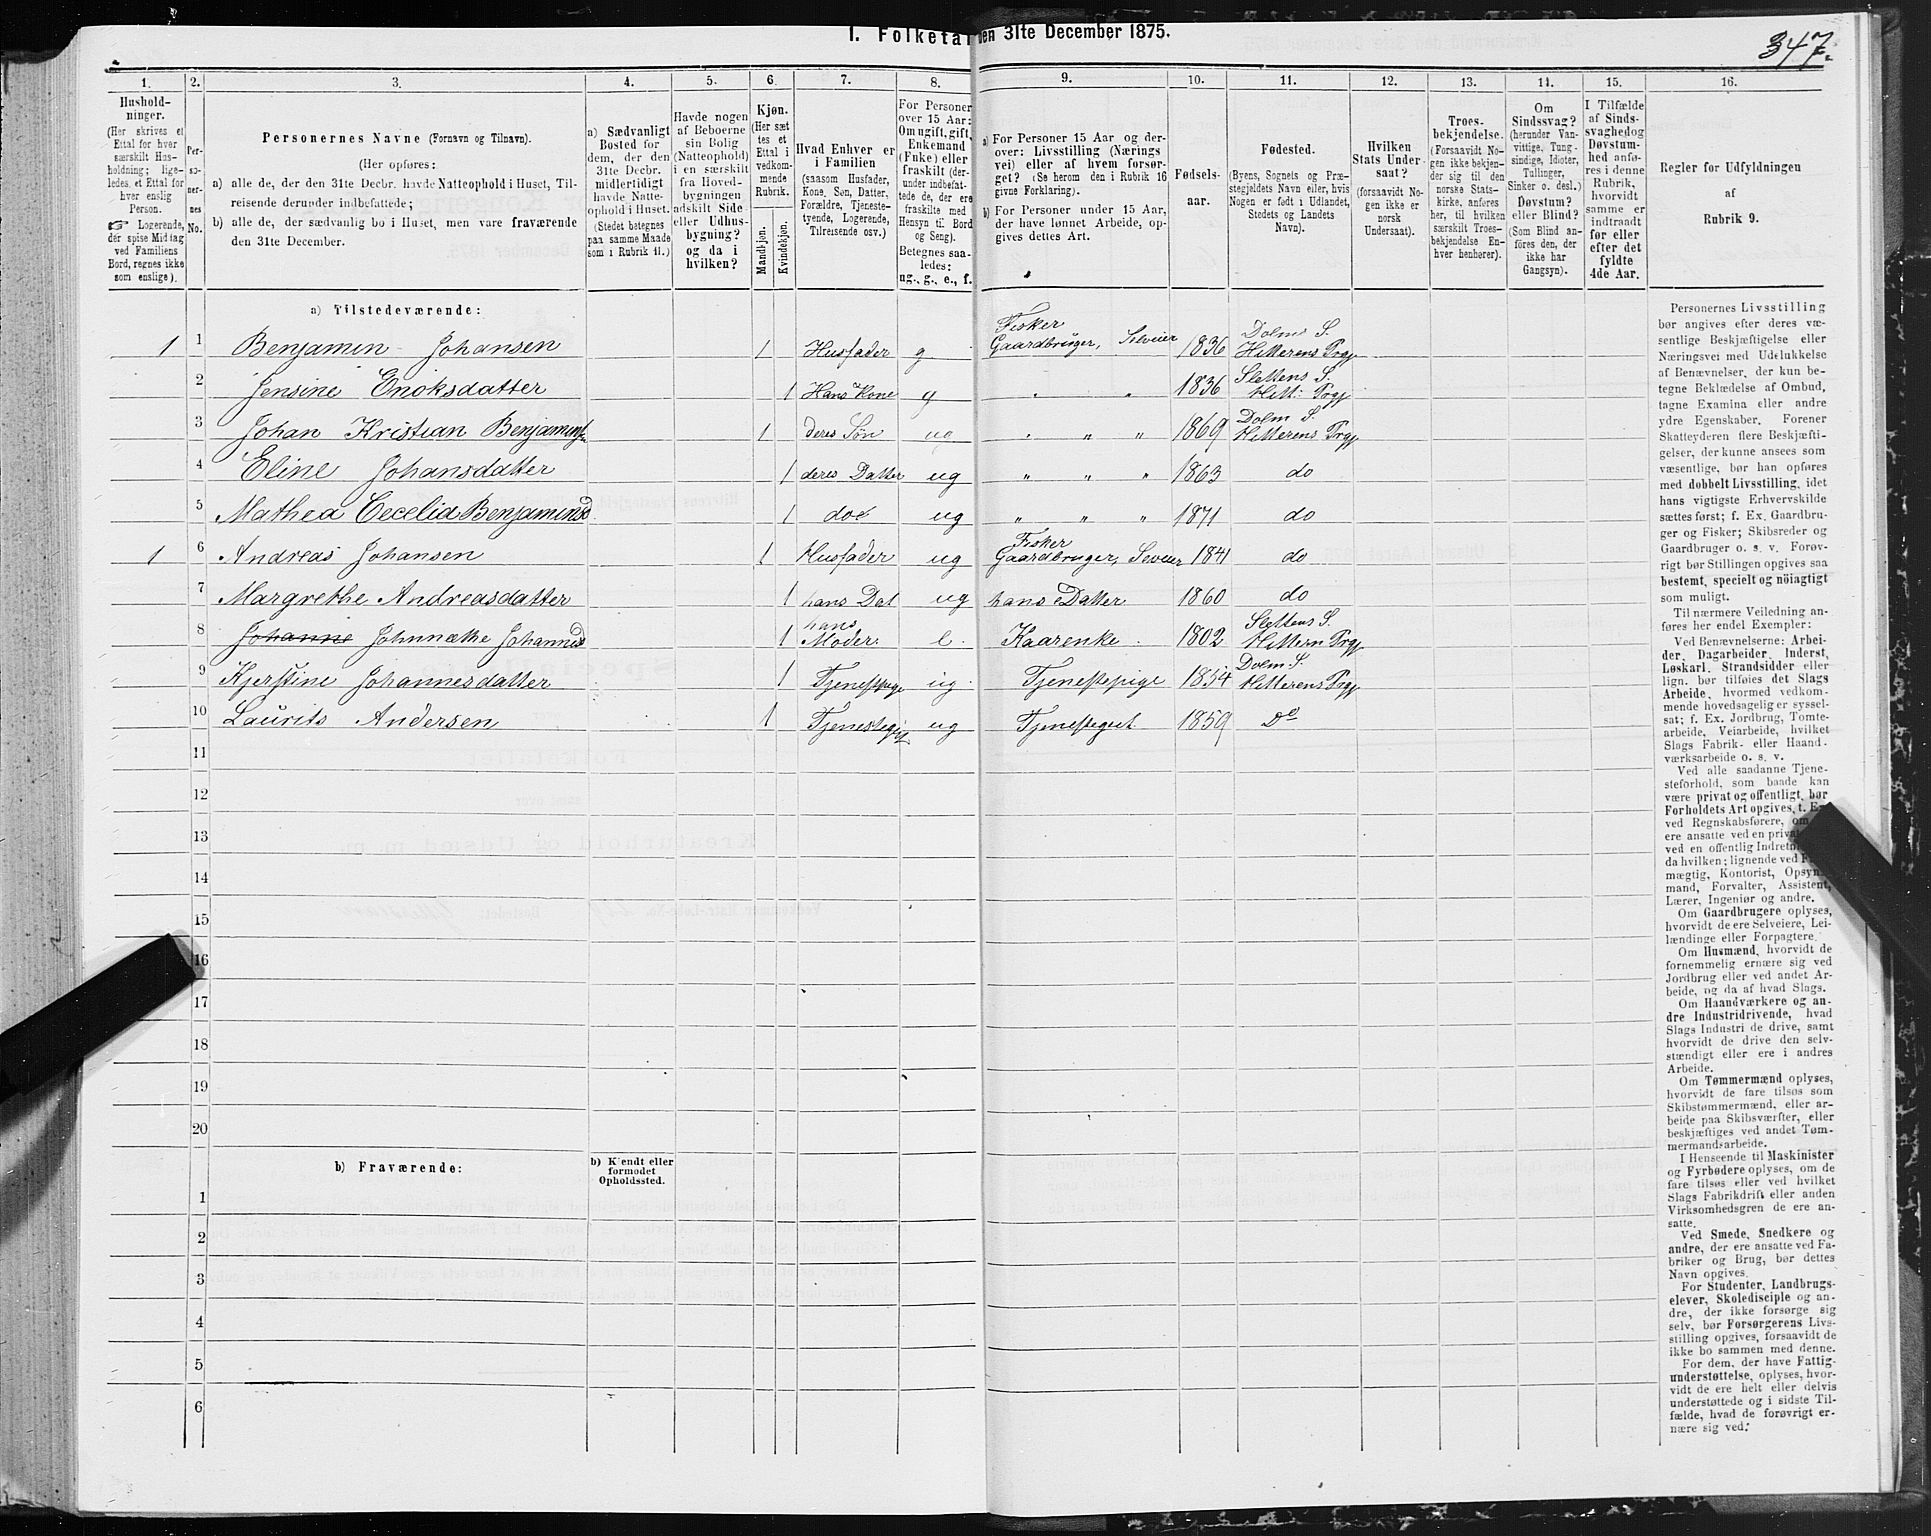 I. Folketal den 31te December 1875.
347.
1.
Hushold-
ninger.
(Her skrives et
Ettal for hver
særskilt Hus-
holdning; lige-
ledes et Ettal for
hver enslig
Person.
☞ Logerende,
der spise Middag
ved Familiens
Bord, regnes ikke
som enslige).
2.
Per-
so-
ner-
nes
No.
3.
Personernes Navne (Fornavn og Tilnavn).
(Her opføres:
a) alle de, der den 31te Decbr. havde Natteophold i Huset, Til-
reisende derunder indbefattede;
b) alle de, der sædvanlig bo i Huset, men vare fraværende
den 31te December.
4.
a) Sædvanligt
Bosted for
dem, der den
31te Decbr.
midlertidigt
havde Natte-
ophold i Huset.
(Stedet betegnes
paa samme Maade
som i Rubrik 11.)
5.
Havde nogen
af Beboerne
sin Bolig
(Natteophold)
i en særskilt
fra Hoved-
bygningen
adskilt Side-
eller Udhus-
bygning?
og da i
hvilken?
6.
Kjøn.
(Her sæt-
tes et
Ettal i
vedkom-
mende
Rubrik.
Mandkjøn.
Kvindekjøn.
7.
Hvad Enhver er
i Familien
(saasom Husfader,
Kone, Søn, Datter,
Forældre, Tjeneste-
tyende, Logerende,
Tilreisende osv.)
8.
For Personer
over 15 Aar:
Om ugift, gift,
Enkemand
(Enke) eller
fraskilt (der-
under indbefat-
tede de, der ere
fraskilte med
Hensyn til Bord
og Seng).
Betegnes saa-
ledes:
ug., g., e., f.
9.
a) For Personer 15 Aar og der-
over: Livsstilling (Nærings-
vei) eller af hvem forsør-
get? (Se herom den i Rubrik 16
givne Forklaring).
b) For Personer under 15 Aar,
der have lønnet Arbeide, op-
gives dettes Art.
10.
Fødsels-
aar.
11.
Fødested.
(Byens, Sognets og Præ-
stegjeldets Navn eller, hvis
Nogen er født i Udlandet,
Stedets og Landets
Navn).
12.
Hvilken
Stats Under-
saat?
(forsaavidt No-
gen ikke er
norsk
Undersaat).
13.
Troes-
bekjendelse.
(Forsaavidt No-
gen ikke bekjen-
der sig til den
norske Stats-
kirke, anføres
her, til hvilken
særskilt Troes-
bekjendelse En-
hver henhører).
14.
Om
Sindssvag?
(herunder Van-
vittige, Tung-
sindige, Idioter,
Tullinger,
Sinker o. desl.)
Døvstum?
eller Blind?
(Som Blind an-
føres den, der
ikke har
Gangsyn).
15.
I Tilfælde
af Sinds-
svaghed og
Døvstum-
hed anfø-
res i denne
Rubrik,
hvorvidt
samme er
indtraadt
før eller
efter det
fyldte
4de Aar.
16.
Regler for Udfyldningen
af
Rubrik 9.
a) Tilstedeværende:
1 1 Benjamin Johansen 1 Husfader g Fisker Gaardbruger, Selveier 1836 Dolm S. Hitterens Prgj
2 Jensine Enoksdatter 1 Hans Kone g " " 1836 Slettens S. Hitt: Prgj
3 Johan Kristian Benjaminsn 1 deres Søn ug " " " 1869 Dolm S. Hitterens Prgj
4 Eline Johansdatter 1 deres Datter ug " " " 1863 do
5 Mathea Cecelia Benjaminsd 1 do ug " " " 1871 do
1 6 Andreas Johansen 1 Husfader ug Fisker Gaardbruger, Selveier 1841 do
7 Margrethe Andreasdatter 1 hans Dat ug hans Datter 1860 do
8 Johanne Johnnethe Johannesd 1 hans Moder. e. Kaarenke. 1802 Slettens S. Hittern Prgj
9 Kjerstine Johannesdatter 1 Tjenestpige ug. Tjenestepige 1854 Dolm S. Hitterens Prgj
10 Laurits Andersen 1 Tjenestegut ug Tjenestegut 1859 Do
11
12
13
14
15
16
17
18
19
20
b) Fraværende:
b) Kjendt eller
formodet
Opholdssted.
1
2
3
4
5
6
Personernes Livsstilling
bør angives efter deres væ-
sentlige Beskjæftigelse eller
Næringsvei med Udelukkelse
af Benævnelser, der kun be-
tegne Beklædelse af Ombud,
tagne Examina eller andre
ydre Egenskaber. Forener
Skatteyderen flere Beskjæfti-
gelser, der kunne ansees som
væsentlige, bør han opføres
med dobbelt Livsstilling, idet
hans vigtigste Erhvervskilde
sættes først; f. Ex. Gaardbru-
ger og Fisker; Skibsreder og
Gaardbruger o. s. v. Forøv-
rigt bør Stillingen opgives saa
bestemt, specielt og nöiagtigt
som muligt.
Til nærmere Veiledning an-
føres her endel Exempler:
Ved Benævnelserne: Arbei-
der, Dagarbeider, Inderst,
Løskarl, Strandsidder eller
lign. bør tilføies det Slags
Arbeide, hvormed vedkom-
mende hovedsagelig er syssel-
sat; f. Ex. Jordbrug, Tomte-
arbeide, Veiarbeide, hvilket
Slags Fabrik- eller Haand-
værksarbeide o. s. v.
Ved alle saadanne Tjene-
steforhold, som baade kan
være privat og offentligt, bør
Forholdets Art opgives, t. Ex.
ved Regnskabsførere, om de
ere ansatte ved en privat
ved en offentlig Indretning
da hvilken; lignende ved
mægtig, Kontorist, Opsyns-
mand, Forvalter, Assistent,
Lærer, Ingeniør og andre.
Om Gaardbrugere oplyses,
hvorvidt de ere Selveiere, Lei-
lændinge eller Forpagtere.
Om Husmænd, hvorvidt de
fornemmelig ernære sig ved
Jordbrug eller ved andet Ar-
beide, og da af hvad Slags.
Om Haandværkere og an-
dre Industridrivende, hvad
Slags Industri de drive, samt
hvorvidt de drive den selv-
stændigt eller ere i andres
Arbeide.
Om Tømmermænd oplyses,
hvorvidt de fare tilsøs som
Skibstømmermænd, eller ar-
beide paa Skibsværfter, eller
beskjæftiges ved andet Tøm-
mermandsarbeide.
I Henseende til Maskinister
og Fyrbødere oplyses, om de
fare tilsøs eller ved hvilket
Slags Fabrikdrift eller anden
Virksomhedsgren de ere an-
satte.
Ved Smede, Snedkere og
andre, der ere ansatte ved Fa-
briker og Brug, bør dettes
Navn opgives.
For Studenter, Landbrugs-
elever, Skoledisciple og an-
dre, der ikke forsørge sig
selv, bør Forsørgerens Livs-
stilling opgives, forsaavidt de
ikke bo sammen med denne.
For dem, der have Fattig-
understøttelse, oplyses, hvor-
vidt de ere helt eller delvis
understøttede og i sidste Til-
fælde, hvad de forøvrigt er-
nære sig ved.